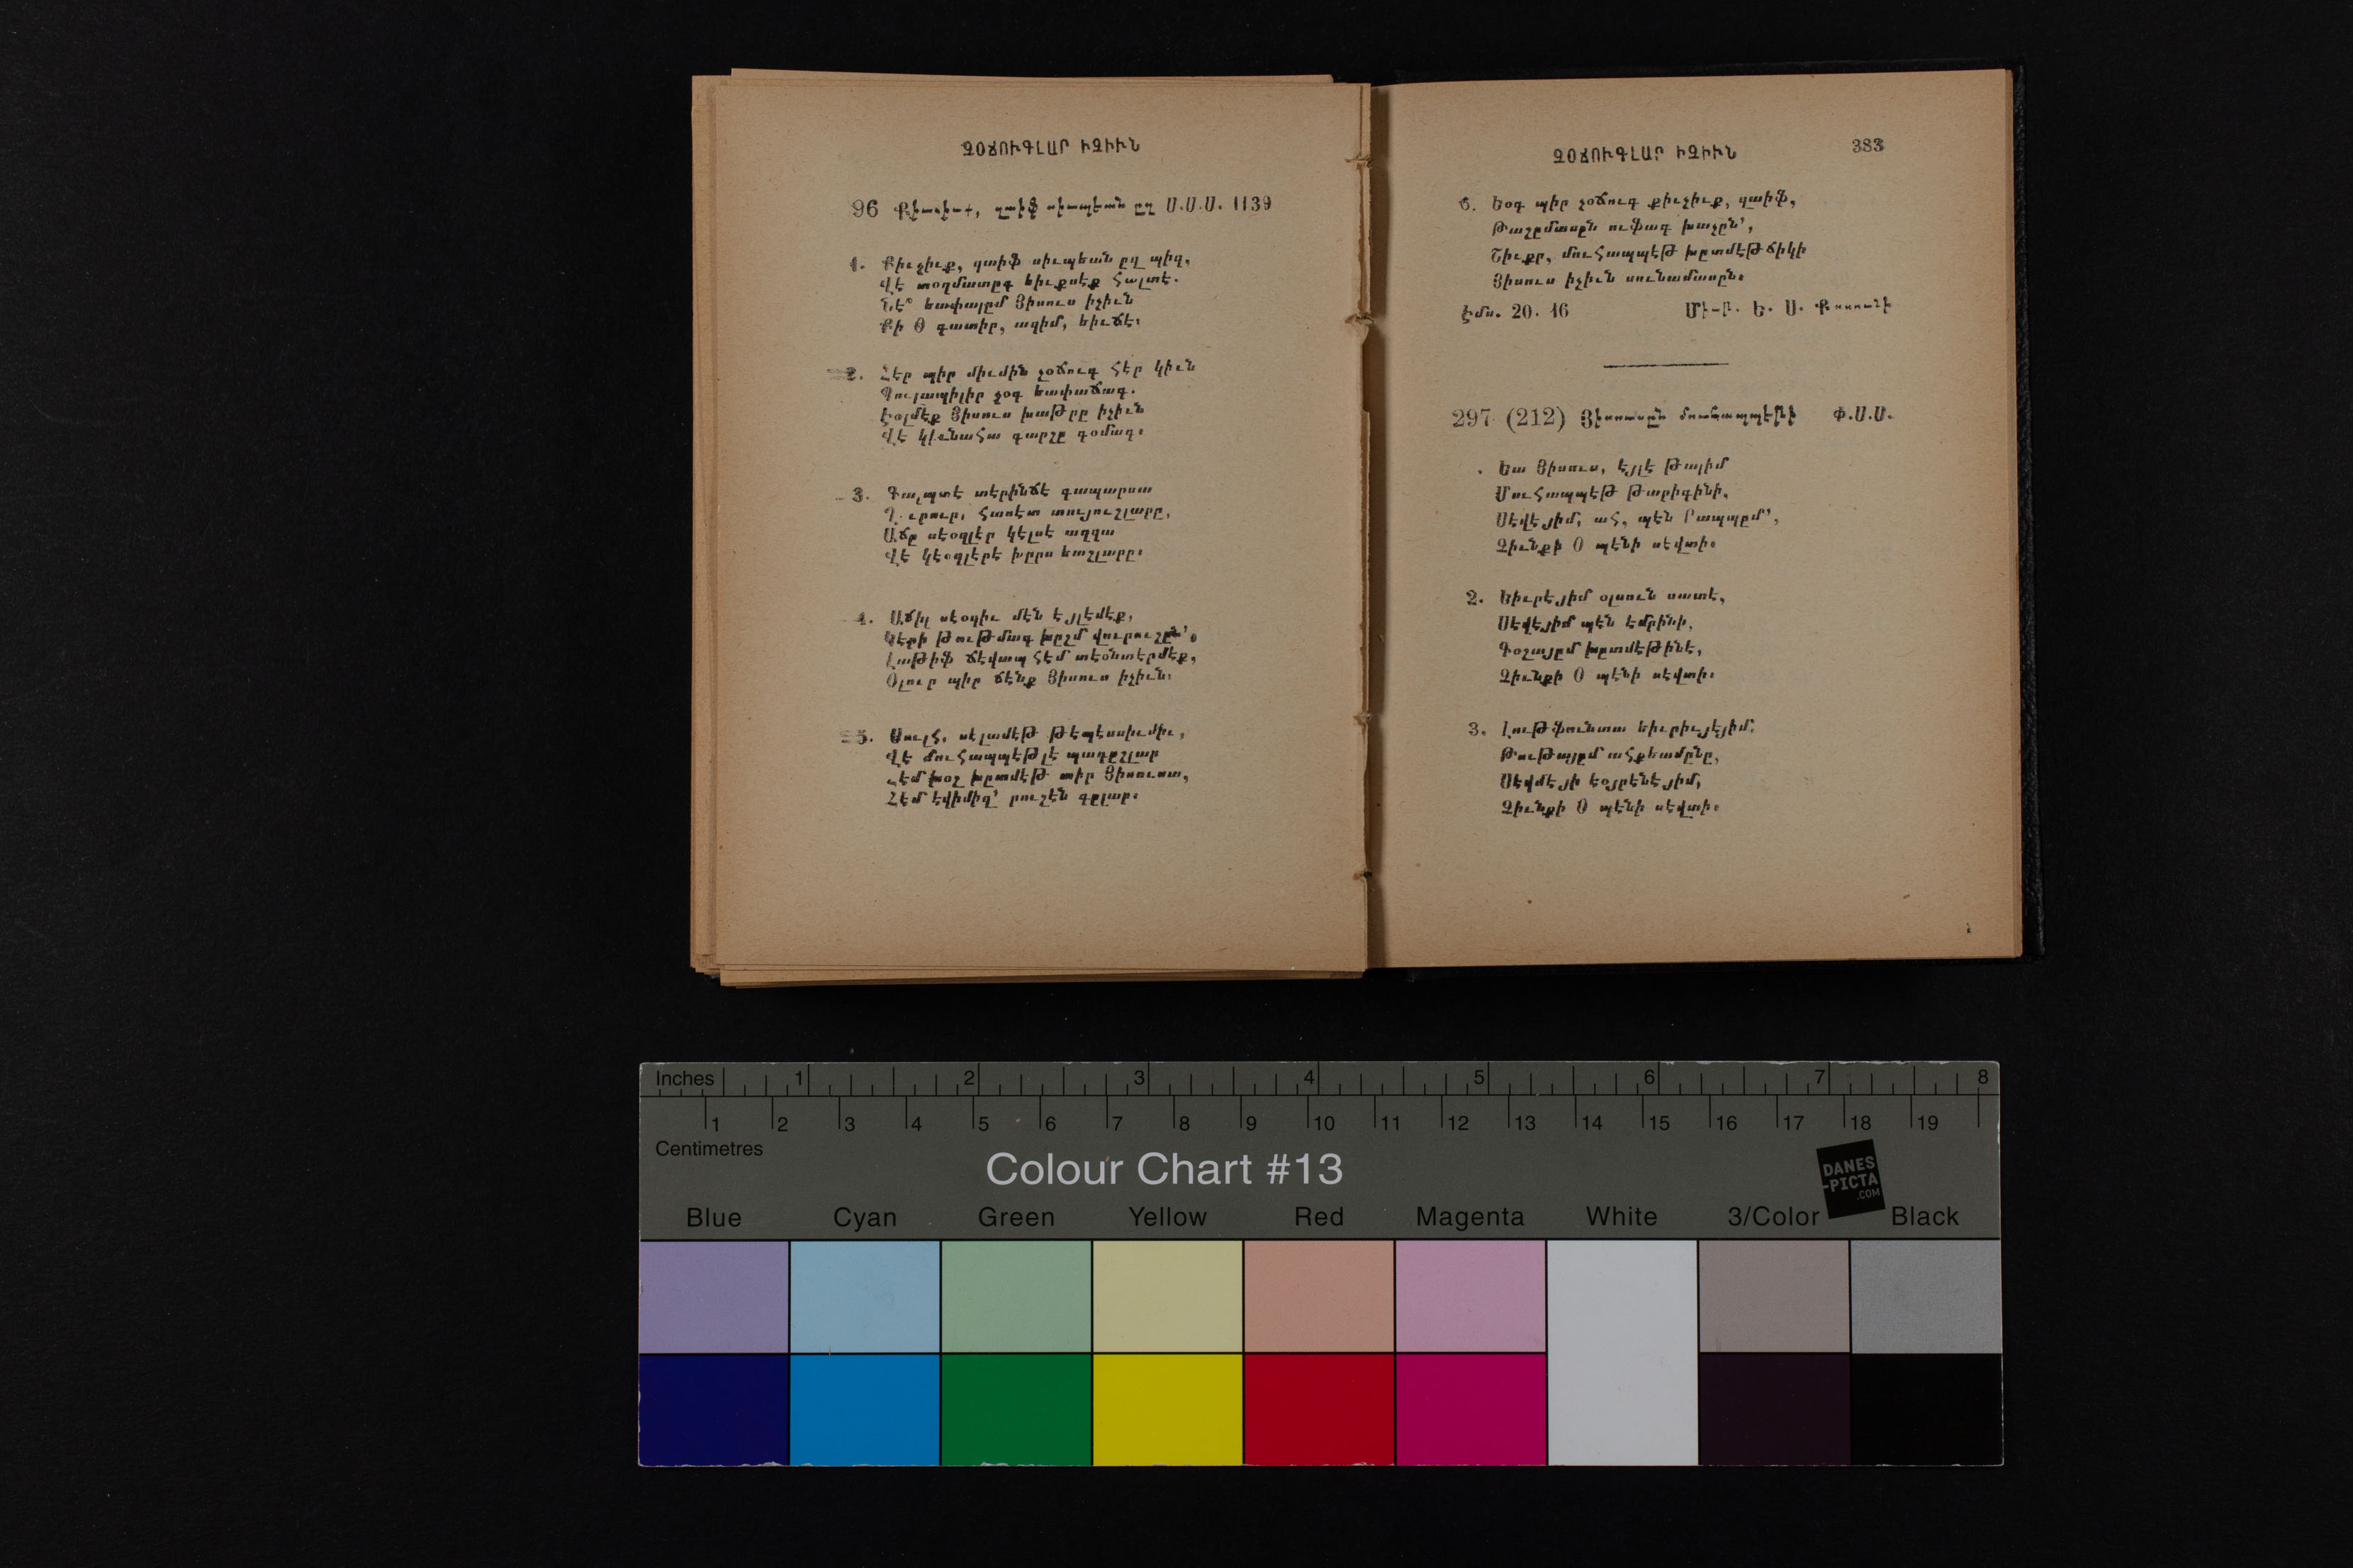 ՉՕՃՈՒԳԼԱՐ ԻՉԻՒՆ
96 Քիւչիւք, զաիֆ սիւպեան ըզ Ս.Ս.Ս. 1139
1. Քիւչիւք, զաիֆ սիւպեան ըզ պիզ,
Վէ տօղմատըգ եիւքսէք հալտէ.
Նէ՞ եափալըմ Յիսուս իչիւն
Քի Օ գատիր, ազիմ, եիւճէ։
2. Հէր պիր միւմին չօճուգ հէր կիւն
Պուլապիլիր չօգ եափաճագ.
Էօլմէք Յիսուս խաթըը իչիւն
Վէ կիւնահա գարշը գօմագ։
3. Գալպտէ տէրինճէ գապարսա
հասէտ տույուշլարը,
Աճը սէօզլէր կէլսէ աղզա
Վէ կէօզլէրէ խըրս եաշլարը։
4. Աճիլ սէօզիւ մէն էյլէմէք,
Կէրի թութմագ խըշմ վուրուշըն՝.
Լաթիֆ ճէվապ հէմ տէօնտէրմէք,
Օլուր պիր ճէնք Յիսուս իչիւն։
5. Սուլհ, սէլամէթ թէպէսսիւմիւ,
Վէ մուհապպէթլէ պագըշլար
Հէմ խօշ խըտմէթ տիր Յիսուսա,
Հէմ էվիմիզ՝ րուշէն գըլար։
ՉՕՃՈՒԳԼԱՐ ԻՉԻՒՆ 383
6. Եօգ պիր չօճուգ քիւչիւք, զաիֆ,
Թաշըմասըն ուֆագ խաչըն՝,
Շիւքր, մուհապպէթ խըտմէթճիկի
Յիսուս իչիւն սունամասըն։
Էմս. 20. 16 Մի-ր. Ե. Ս.
297 (212) Յիսուսըն մուհապպէթի Փ.Ս.Ս.
Եա Յիսուս, էյլէ թալիմ
Մուհապպէթ թարիգինի,
Սէվէյիմ, ահ, պէն Րապպըմ՝,
Չիւնքի Օ պէնի սէվտի։
2. Եիւրէյիմ օլսուն սատէ,
Սէվէյիմ պէն էմրինի,
Գօշայըմ խըտմէթինէ,
Չիւնքի Օ պէնի սէվտի։
3. Լութֆունտա եիւրիւյէյիմ,
Թութայըմ ահքեամընը,
Սէվմէյի էօյրէնէյիմ,
Չիւնքի Օ պէնի սէվտի։
Inches 1 2 3 4 5 6 7 8
1 2 3 4 5 6 7 8 9 10 11 12 13 14 15 16 17 18 19
Centimetres
Colour Chart #13
DANES
-PICTA
.COM
Blue Cyan Green Yellow Red Magenta White 3/Color Black